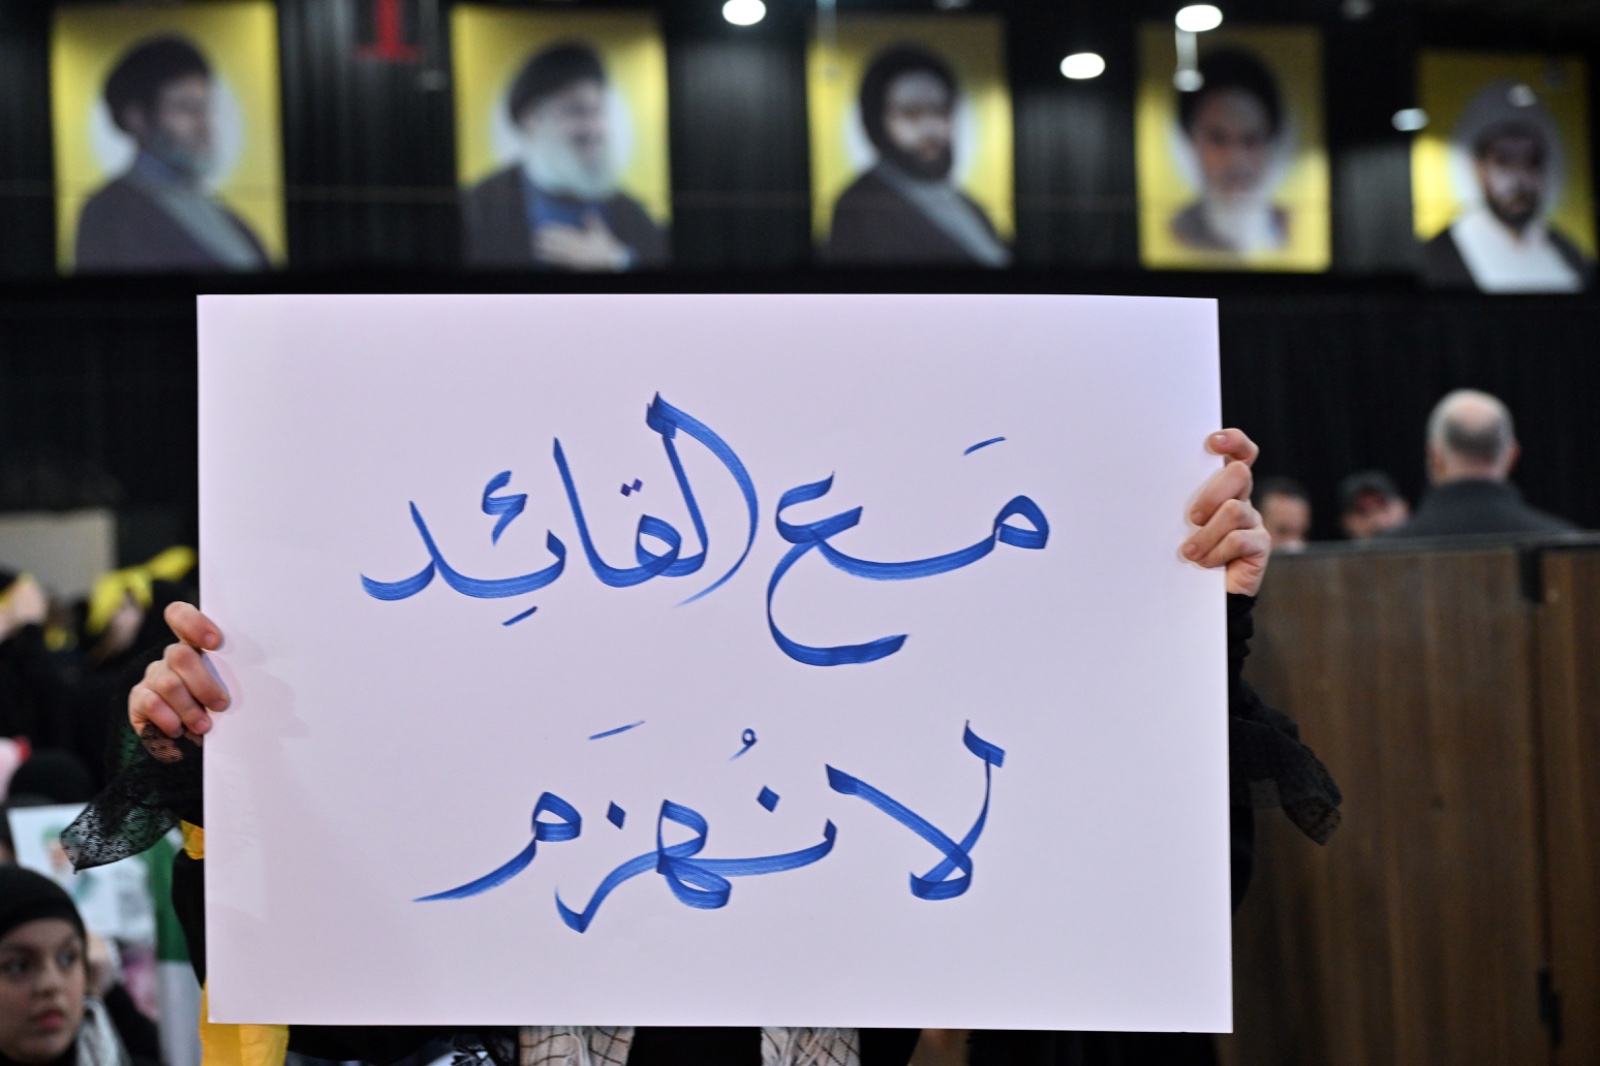 مَع القائِد
لا نُهزَم